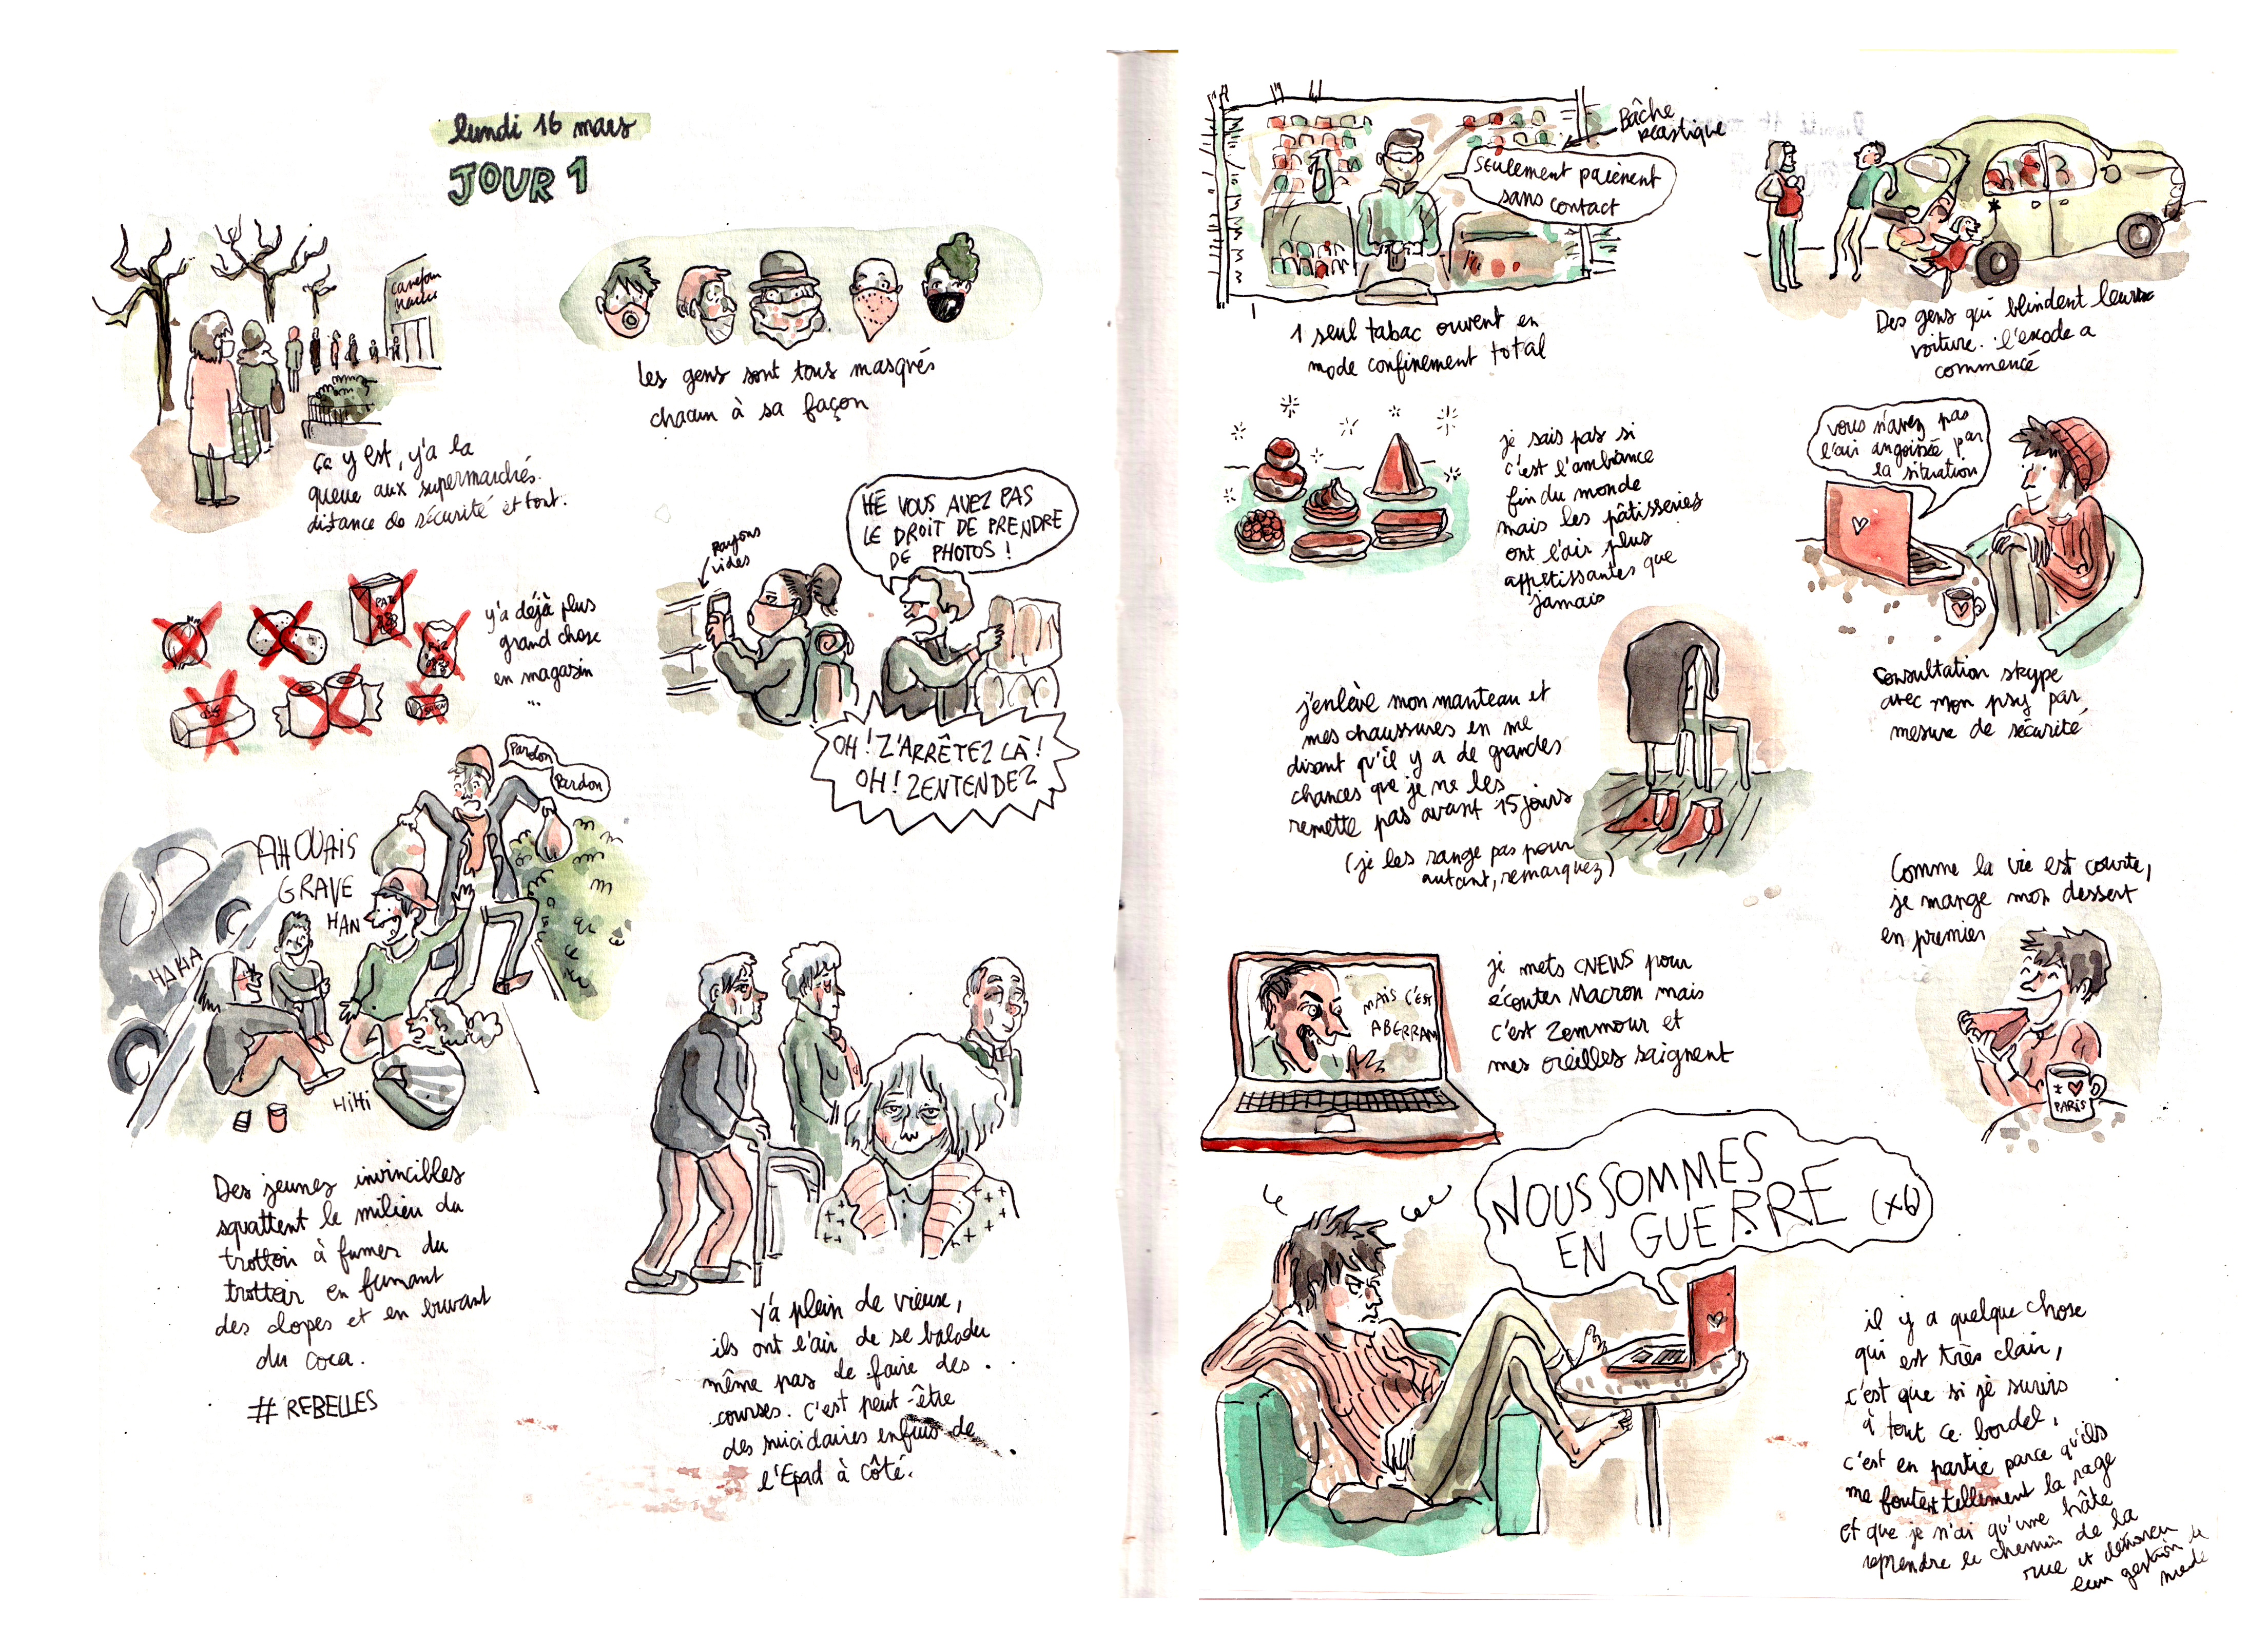 lundi 16 mars
JOUR 1
carrefour
market
ça y est, y'a la
queue aux supermarchés.
distance de sécurité et tout.
les gens sont tous masqués
chacun à sa façon
PATES
RIZ
y'a déjà plus
grand chose
en magasin
...
rayons
vides
HÉ VOUS AVEZ PAS
LE DROIT DE PRENDRE
DE PHOTOS !
OH ! Z'ARRÊTEZ LÀ !
OH ! ZENTENDEZ
Pardon
Pardon
AH OUAIS
GRAVE
HAN
HAHA
HiHi
Des jeunes invincibles
squattent le milieu du
trottoir à fumer du
trottoir en fumant
des clopes et en buvant
du coca.
# REBELLES
y'a plein de vieux,
ils ont l'air de se balader
même pas de faire des
courses. C'est peut-être
des suicidaires enfuis de
l'Epad à côté.
Bâche
plastique
seulement paiement
sans contact
1 seul tabac ouvert en
mode confinement total
Des gens qui blindent leur
voiture. l'exode a
commencé
je sais pas si
c'est l'ambiance
fin du monde
mais les pâtisseries
ont l'air plus
appétissantes que
jamais
vous n'avez pas
l'air angoissée par
la situation
Consultation skype
avec mon psy par
mesure de sécurité
j'enlève mon manteau et
mes chaussures en me
disant qu'il y a de grandes
chances que je ne les
remette pas avant 15 jours
(je les range pas pour
autant, remarquez)
Comme la vie est courte,
je mange mon dessert
en premier
PARiS
MAIS C'EST
ABERRAN
je mets CNEWS pour
écouter Macron mais
c'est Zemmour et
mes oreilles saignent
NOUS SOMMES
EN GUERRE (x6)
il y a quelque chose
qui est très clair,
c'est que si je survis
à tout ce bordel,
c'est en partie parce qu'ils
me foutent tellement la rage
et que je n'ai qu'une hâte
reprendre le chemin de la
rue et
leur gestion de
merde